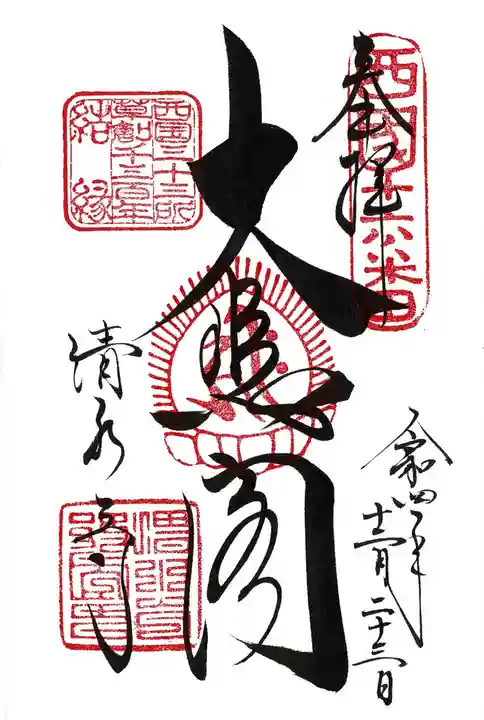 奉拝
西国十六番
令和四年
十二月二十三日
大悲閣
西国三十三所
草創千三百年
結縁
清水寺